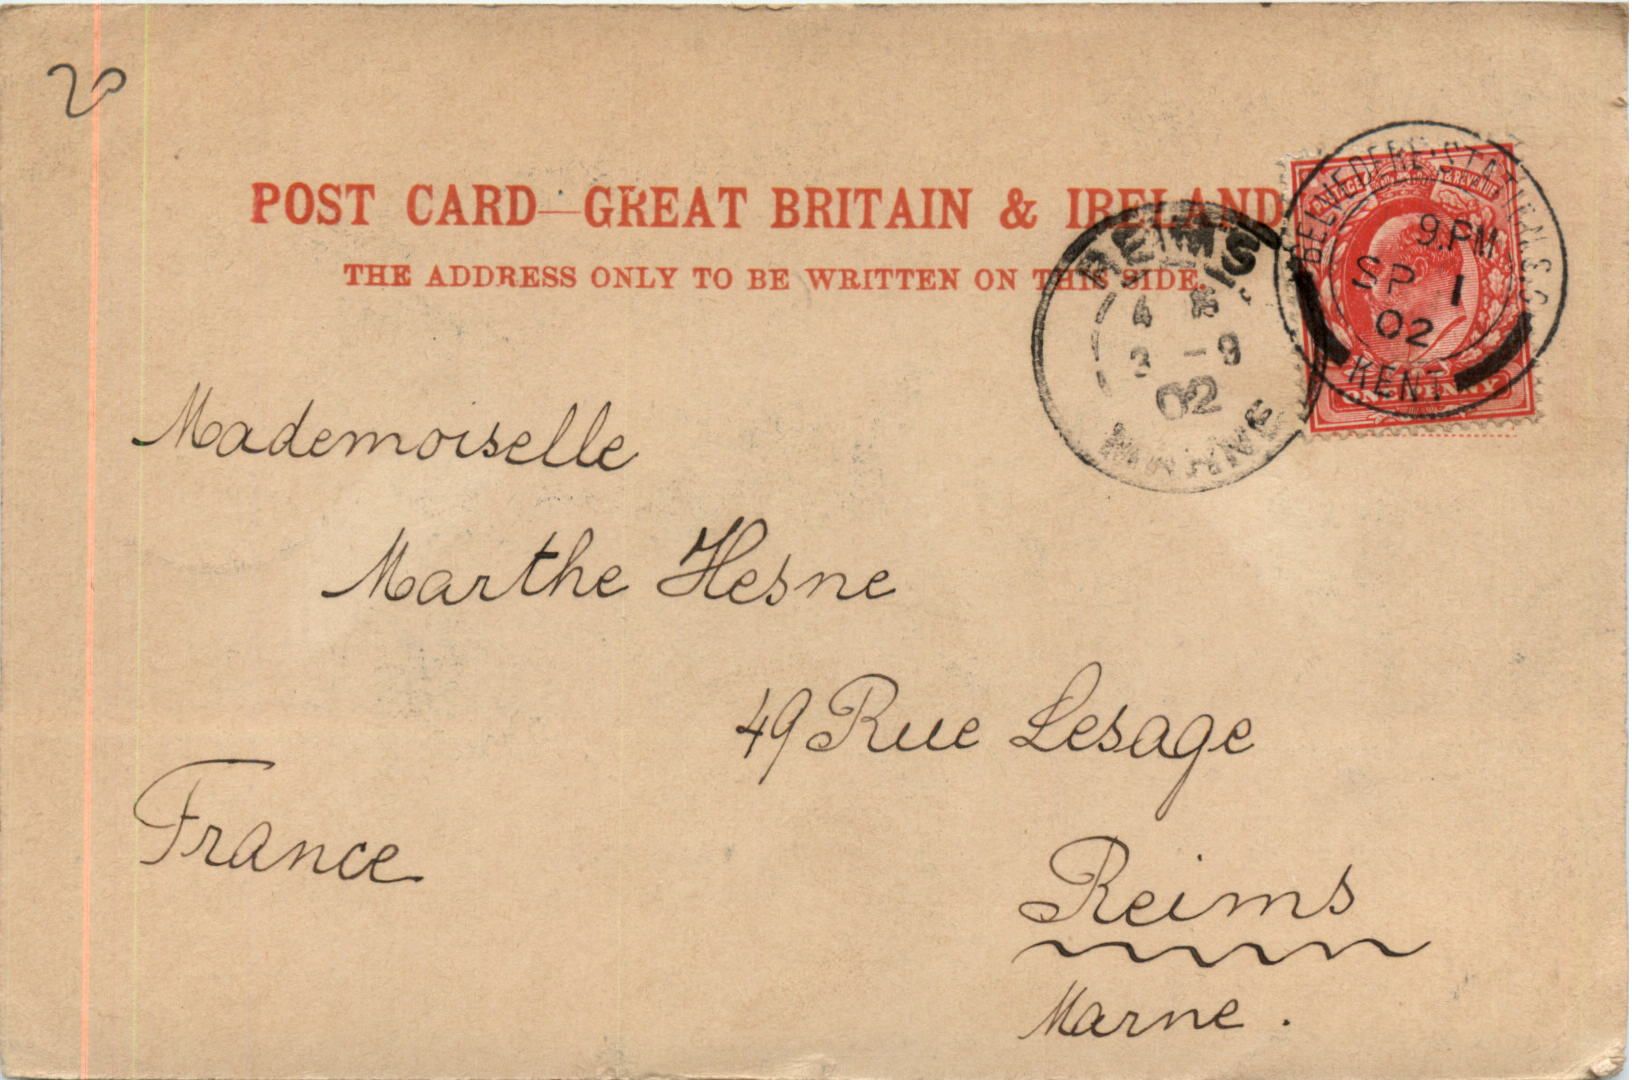 20
POST CARD—GREAT BRITAIN & IRELAND
THE ADDRESS ONLY TO BE WRITTEN ON THIS SIDE.
BELVEDERE·STATION S.O.
9.PM
SP 1
02
KENT
POSTAGE & REVENUE
ONE PENNY
REIMS
4
3 - 9
02
MARNE
Mademoiselle
Marthe Hesne
49 Rue Lesage
France
Reims
Marne.